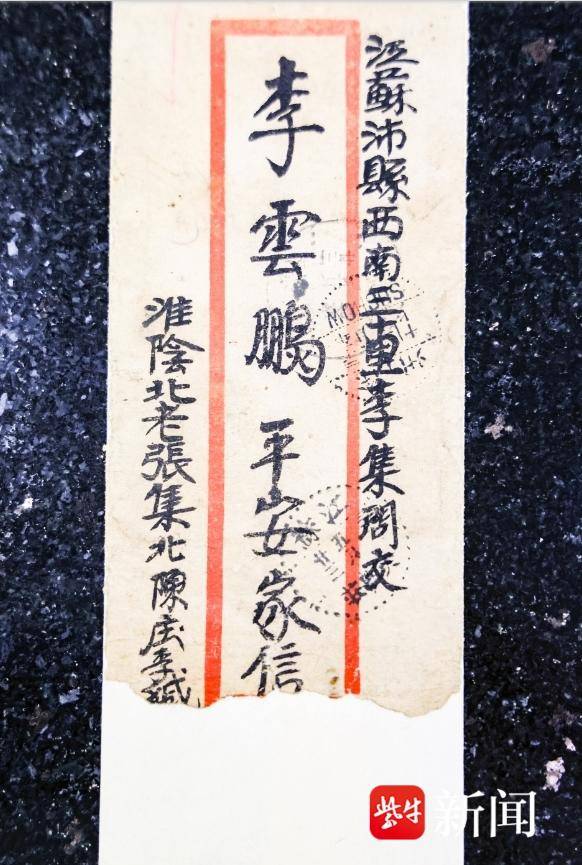 江蘇沛縣西南三十里李集交
李雲鵬 平安家信
淮陰北老張集北陳庄李緘
紫牛 新闻